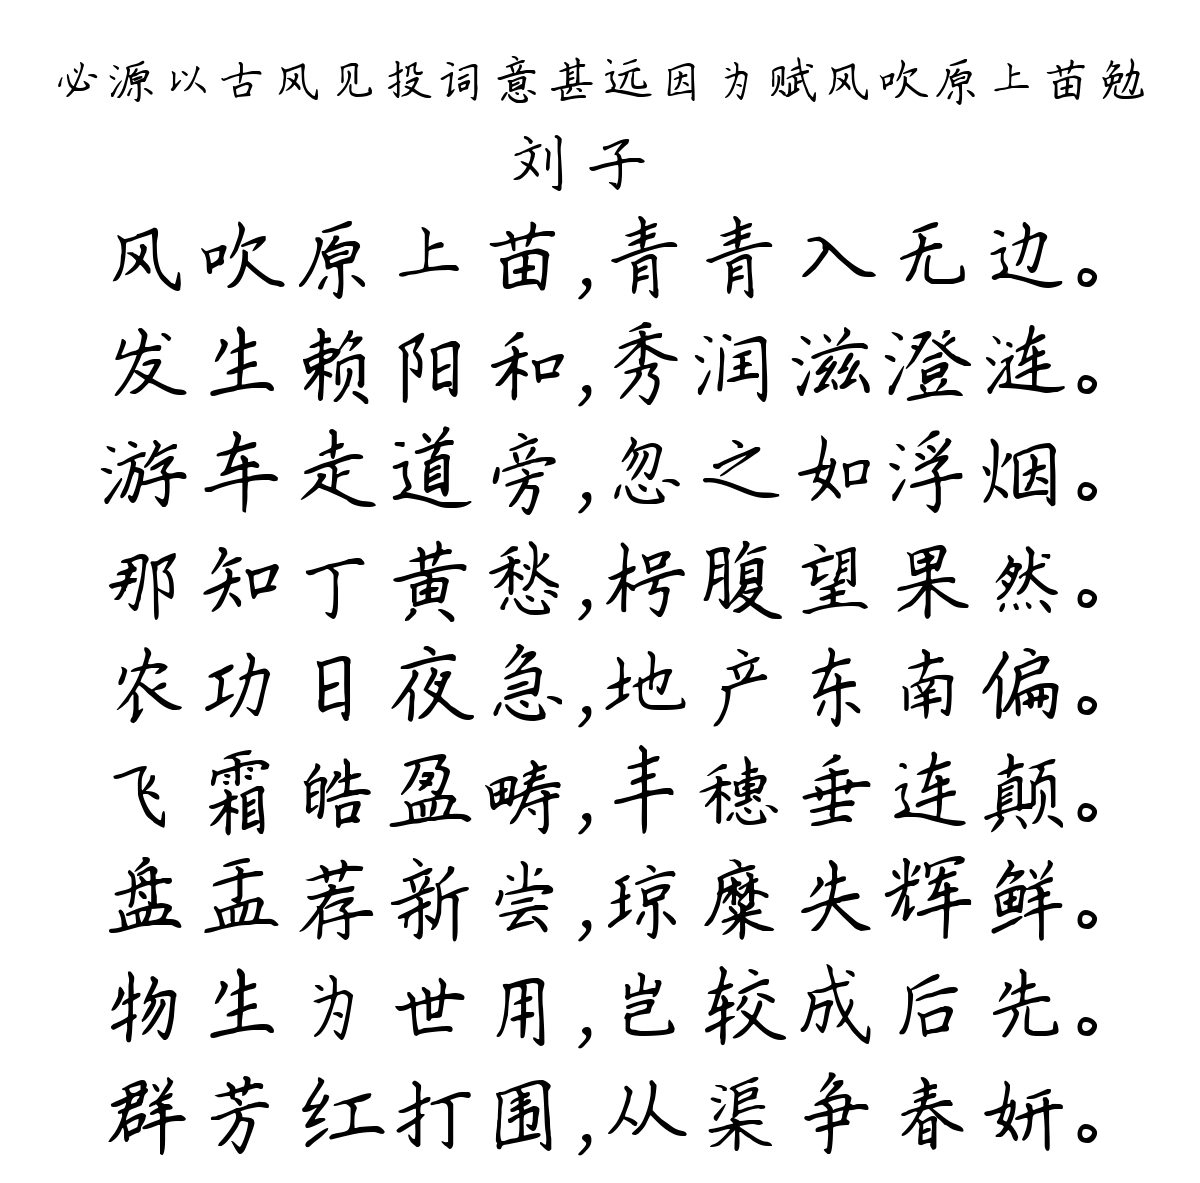 必源以古风见投词意甚远因为赋风吹原上苗勉
刘子
风吹原上苗,青青入无边。
发生赖阳和,秀润滋澄涟。
游车走道旁,忽之如浮烟。
那知丁黄愁,枵腹望果然。
农功日夜急,地产东南偏。
飞霜皓盈畴,丰穗垂连颠。
盘盂荐新尝,琼糜失辉鲜。
物生为世用,岂较成后先。
群芳红打围,从渠争春妍。